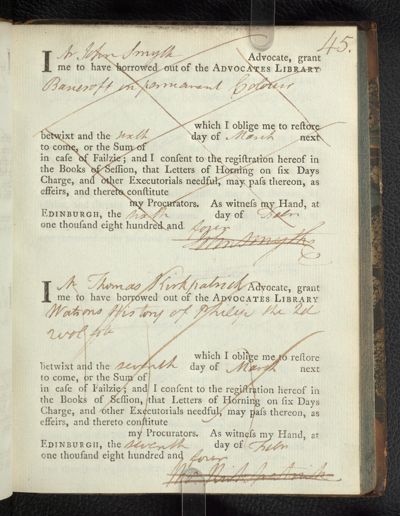 45.
I Mr John Smyth Advocate, grant
me to have borrowed out of the ADVOCATES LIBRARY
Bancroft on permanent Colours
which I oblige me to reſtore
betwixt and the sixth day of March next
to come, or the Sum of
in caſe of Failzie; and I conſent to the regiſtration hereof in
the Books of Seſſion, that Letters of Horning on ſix Days
Charge, and other Executorials needful, may paſs thereon, as
effeirs, and thereto conſtitute
my Procurators. As witneſs my Hand, at
EDINBURGH, the sixth day of Febr
one thouſand eight hundred and four
Smyth
I Mr Thomas Kirkpatrick Advocate, grant
me to have borrowed out of the ADVOCATES LIBRARY
Watsons History of Philip the 2d
2 vol 4to
which I oblige me to reſtore
betwixt and the seventh day of March next
to come, or the Sum of
in caſe of Failzie; and I conſent to the regiſtration hereof in
the Books of Seſſion, that Letters of Horning on ſix Days
Charge, and other Executorials needful, may paſs thereon, as
effeirs, and thereto conſtitute
my Procurators. As witneſs my Hand, at
EDINBURGH, the seventh day of Febr
one thouſand eight hundred and four
Kirkpatrick